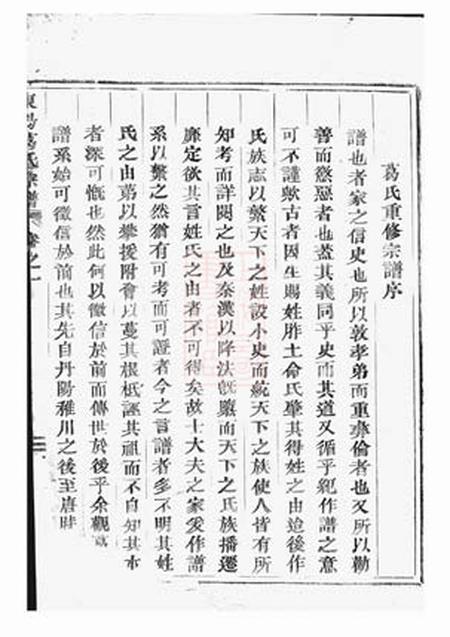 葛氏重修宗譜序
譜也者家之信史也所以敦孝弟而重彞倫者也又所以勸
善而懲惡者也蓋其義同乎史而其道又循乎紀作譜之意
可不謹歟古者因生賜姓胙土命氏肇其得姓之由迨後作
氏族志以繫天下之姓設小史而統天下之族使人皆有所
知考而詳閱之也及秦漢以降法既隳而天下之氏族播遷
靡定欲其言姓氏之由者不可得矣故士大夫之家爰作譜
系以繫之然猶有可考而可證者今之言譜者多不明其姓
氏之由第以攀援附會以蔓其根柢誣其祖而不自知其本
者深可慨也然此何以徵信於前而傳世於後乎余觀葛
譜系始可徵信於前也其先自丹陽稚川之後至唐時
東陽葛氏宗譜 卷之一